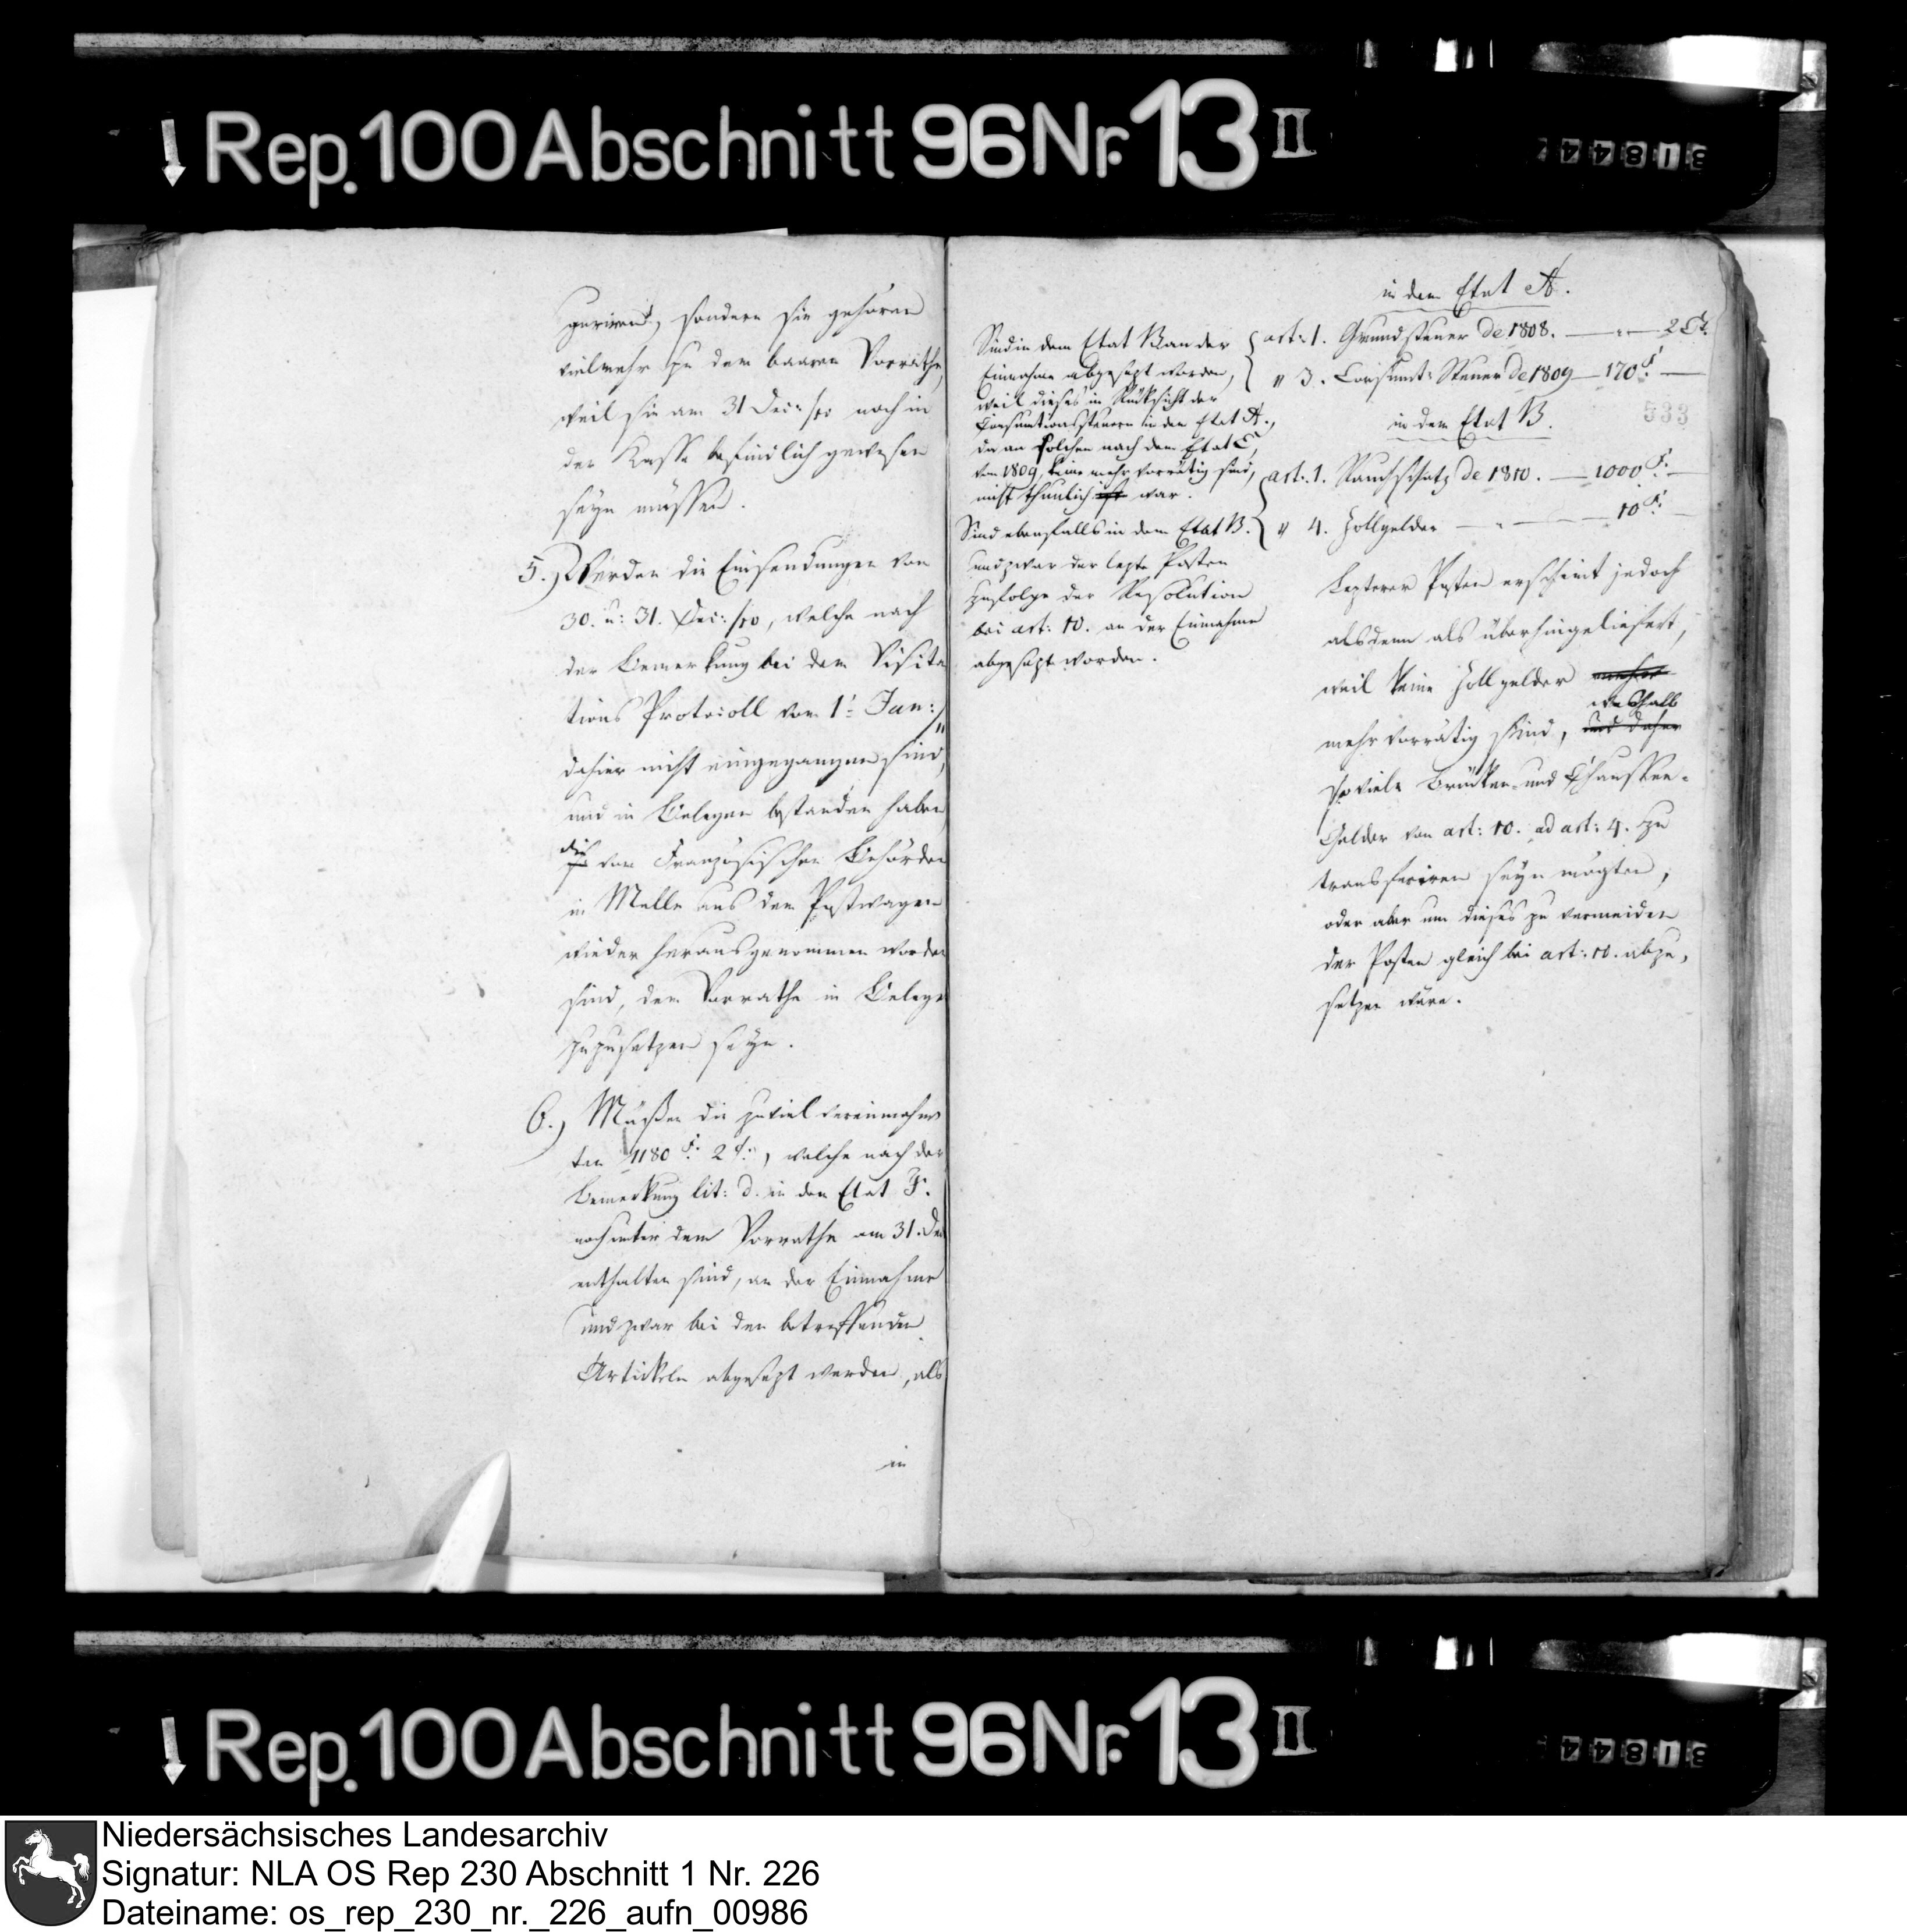 Rep. 100 Abschnitt 96 Nr. 13 II
31844
guriren, sondern sie gehören
vielmehr zu dem baaren Vorrathe,
weil sie am 31 Dec: /10 noch in
der Kasse befindlich gewesen
seyn müssen.
5.) Werden die Einsendungen vom
30. u: 31. Dec: /10, welche nach
der Bemerkung bei dem Visita
tions Protocoll vom 1t Jan:
dahier nicht eingegangen sind,
und in Belegen bestanden haben
die von Französischen Behörden
in Melle aus dem Postwagen
wieder herausgenommen worden
sind, dem Vorrathe in Belege
zuzusetzen seyn.
6.) Müßen die zuviel vereinnahm
ten 1180 F. 2 C., welche nach der
Bemerkung lit: d. in den Etat F.
noch unter dem Vorrathe am 31. Dec
enthalten sind, an der Einnahme
und zwar bei den betreffenden
Artikeln abgesezt werden, als
in
in dem Etat A.
art: 1. Grundsteuer de 1808. — " — 2 Ct.
" 3. Consumt: Steuer de 1809 — 170 F. —
533
in dem Etat B.
art: 1. Rauchschatz de 1810. — 1000 F. —
" 4. Zollgelder — " — 10 F. —
Sind in dem Etat B an der
Einnahme abgesezt worden,
weil dieses in Rücksicht der
Consumtionssteuern in den Etat A.,
da an solchen nach dem Etat C,
vom 1809, keine mehr vorrätig sind,
nicht thunlich ist war.
Sind ebenfalls in dem Etat B.
und zwar der lezte Posten
zufolge der Resolution
bei art: 10. an der Einnahme
abgesezt worden.
Lezterer Posten erscheint jedoch
alsdenn als überhingeliefert,
weil keine Zollgelder mehr
weshalb
mehr vorrätig sind, und daher
so viele Brücken- und Chaussee-
Gelder von art: 10. ad art: 4. zu
transferiren seyn mögten,
oder aber um dieses zu vermeiden
der Posten gleich bei art: 10. abzu,
setzen wäre.
Rep. 100 Abschnitt 96 Nr. 13 II
31844
Niedersächsisches Landesarchiv
Signatur: NLA OS Rep 230 Abschnitt 1 Nr. 226
Dateiname: os_rep_230_nr._226_aufn_00986